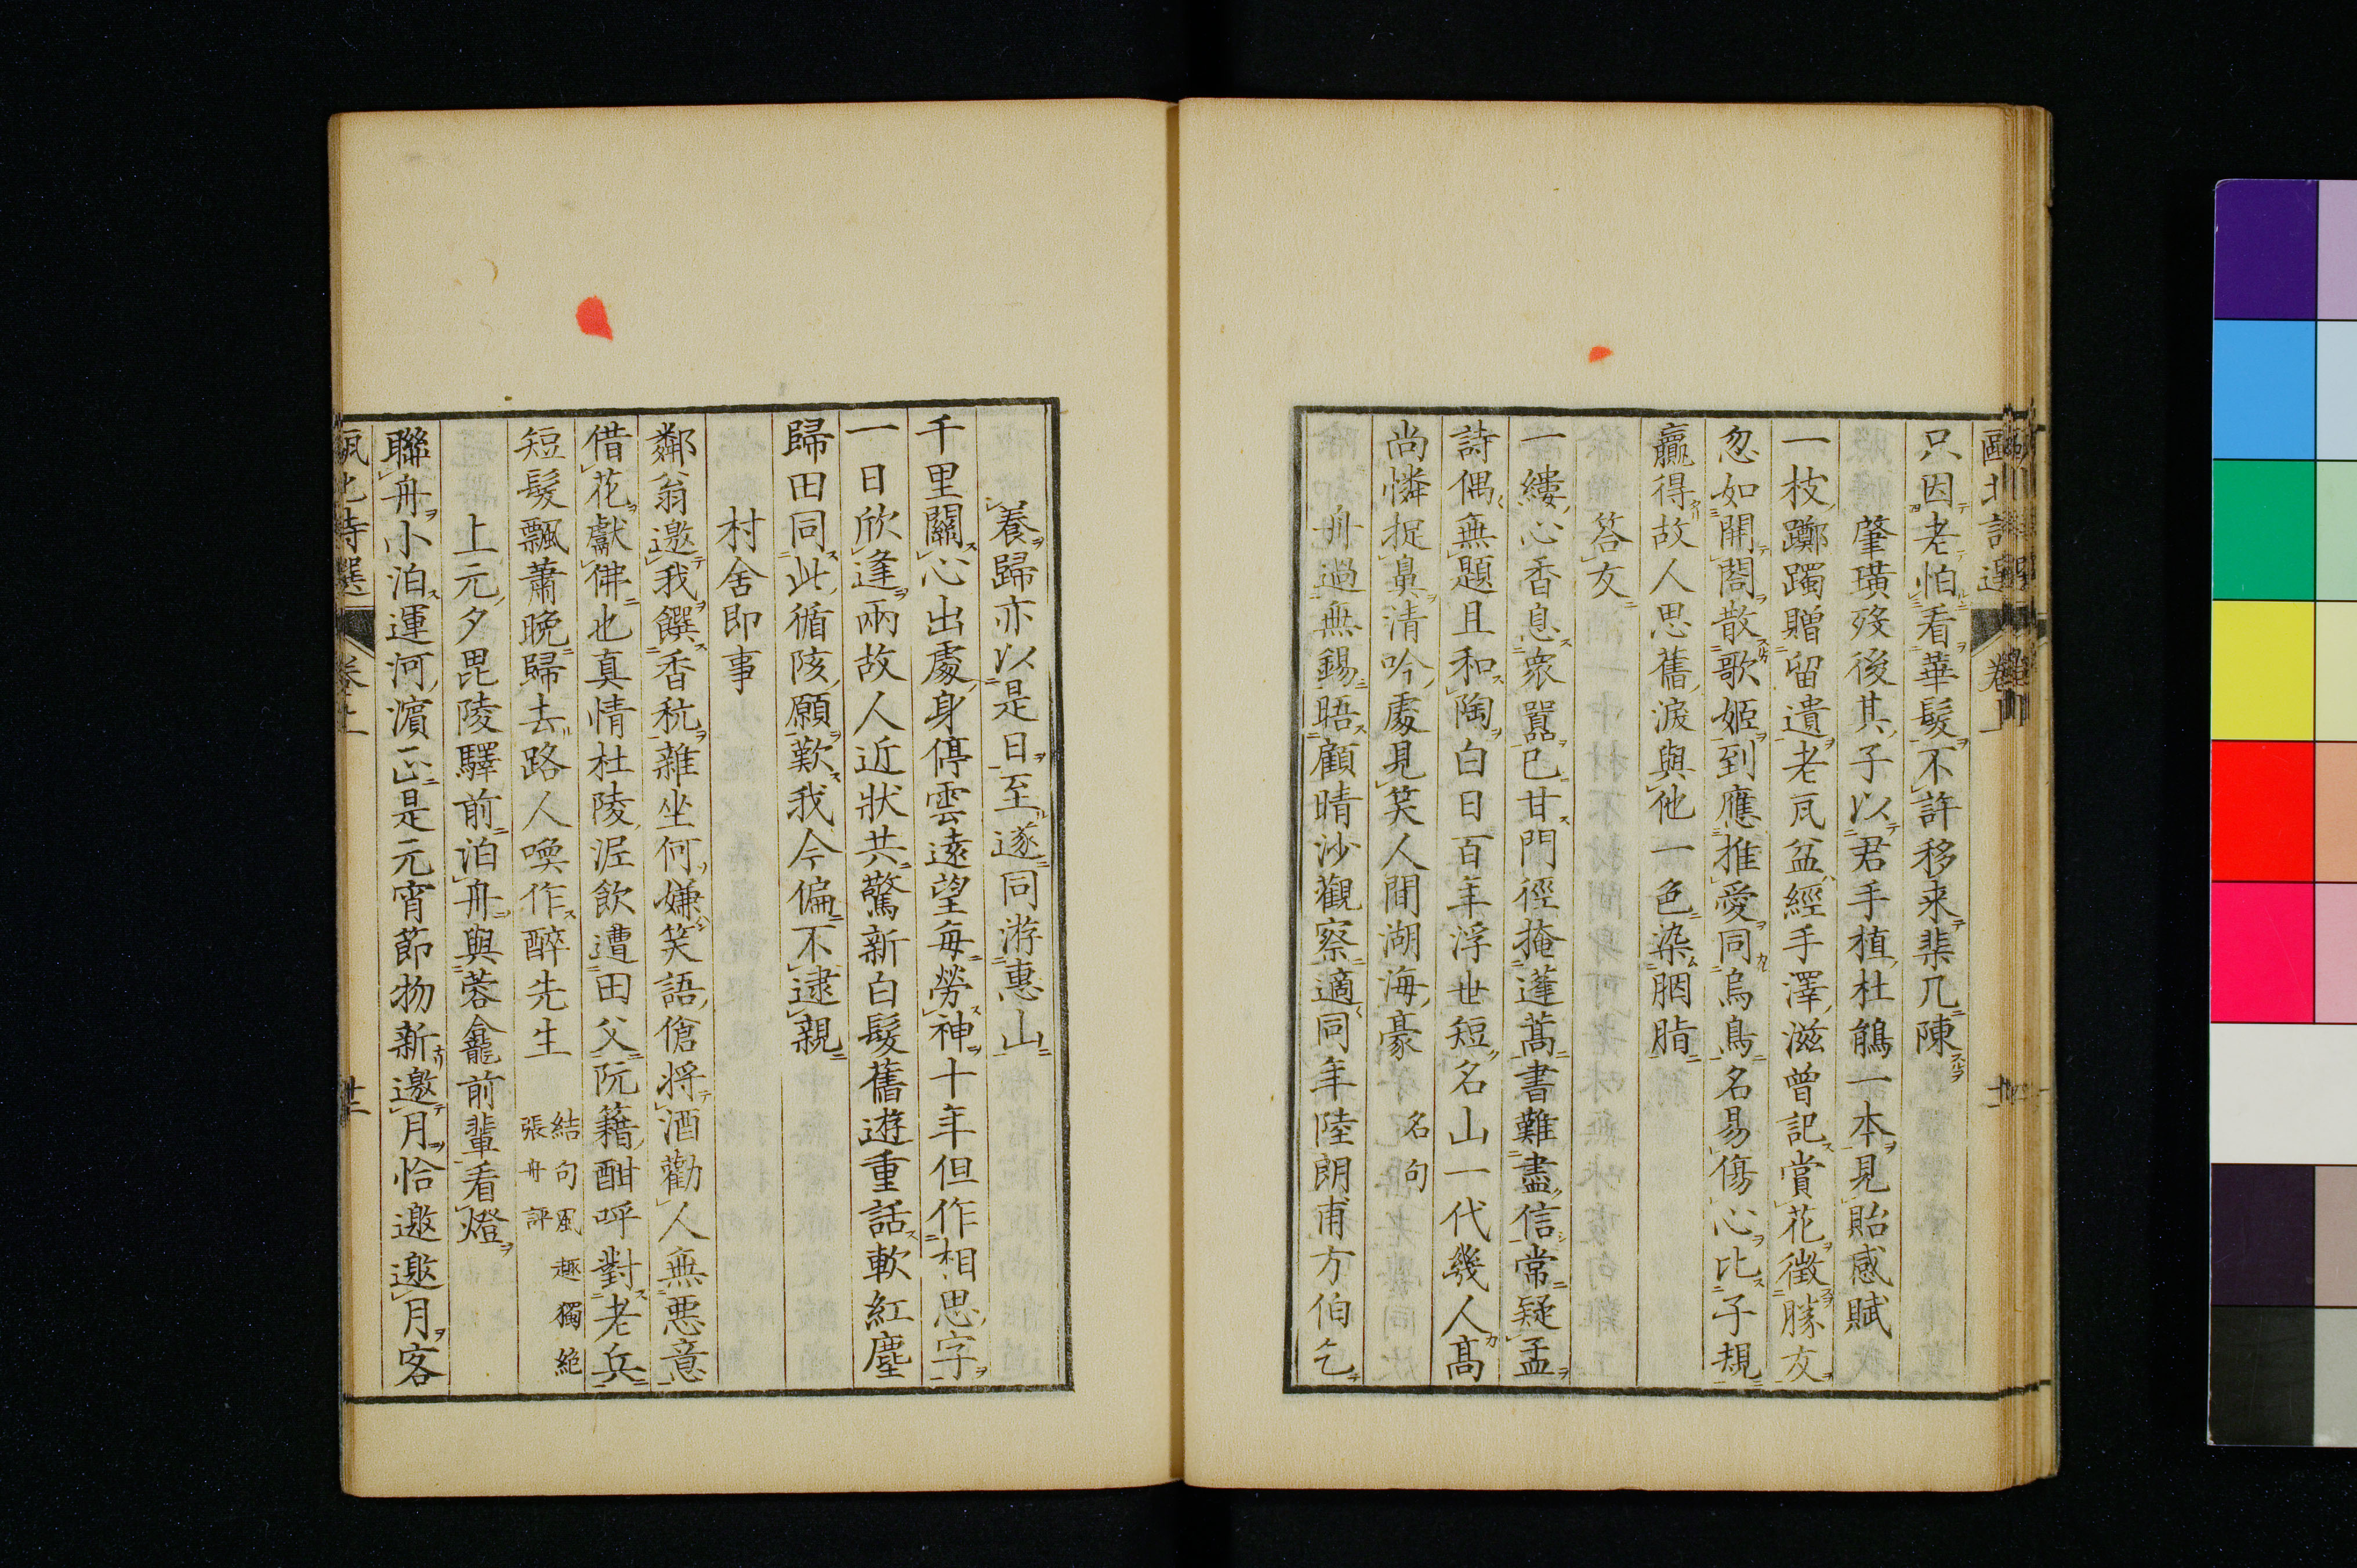 甌北詩選
只因老怕看華髮不許移来棐几陳
肇璜歿後其子以君手植杜鵑一本見貽感賦
一枝躑躅贈留遺老瓦盆經手澤滋曾記賞花徵勝友
忽如開閤散歌姬到應推愛同烏鳥名易傷心比子規
贏得故人思舊淚與他一色染胭脂
答友
一縷心香息衆囂已甘門徑掩蓬蒿書難盡信常疑孟
詩偶無題且和陶白日百年浮世短名山一代幾人高
尚憐捉鼻清吟處見笑人間湖海豪 名句
舟過無錫晤顧晴沙觀察適同年陸朗甫方伯乞
養歸亦以是日至遂同游惠山
千里關心出處身停雲遠望每勞神十年但作相思字
一日欣逢兩故人近狀共驚新白髮舊遊重話軟紅塵
歸田同此循陔願歎我今偏不逮親
村舍即事
鄰翁邀我饌香秔雜坐何嫌笑語傖將酒勸人無惡意
借花獻佛也真情杜陵泥飲遭田父阮籍酣呼對老兵
短髮飄蕭晚歸去路人喚作醉先生 結句風趣獨絶
張舟評
上元夕毘陵驛前泊舟與蓉龕前輩看燈
聯舟小泊運河濵正是元宵節物新邀月恰邀邀月客
甌北詩選 卷上 十二